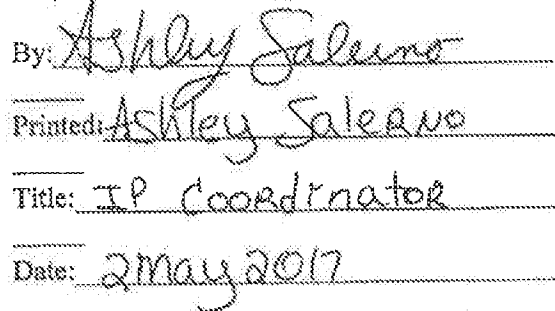 By: Ashley Salerno
Printed: Ashley Salerno
Title: IP Coordinator
Date: 2 May 2017